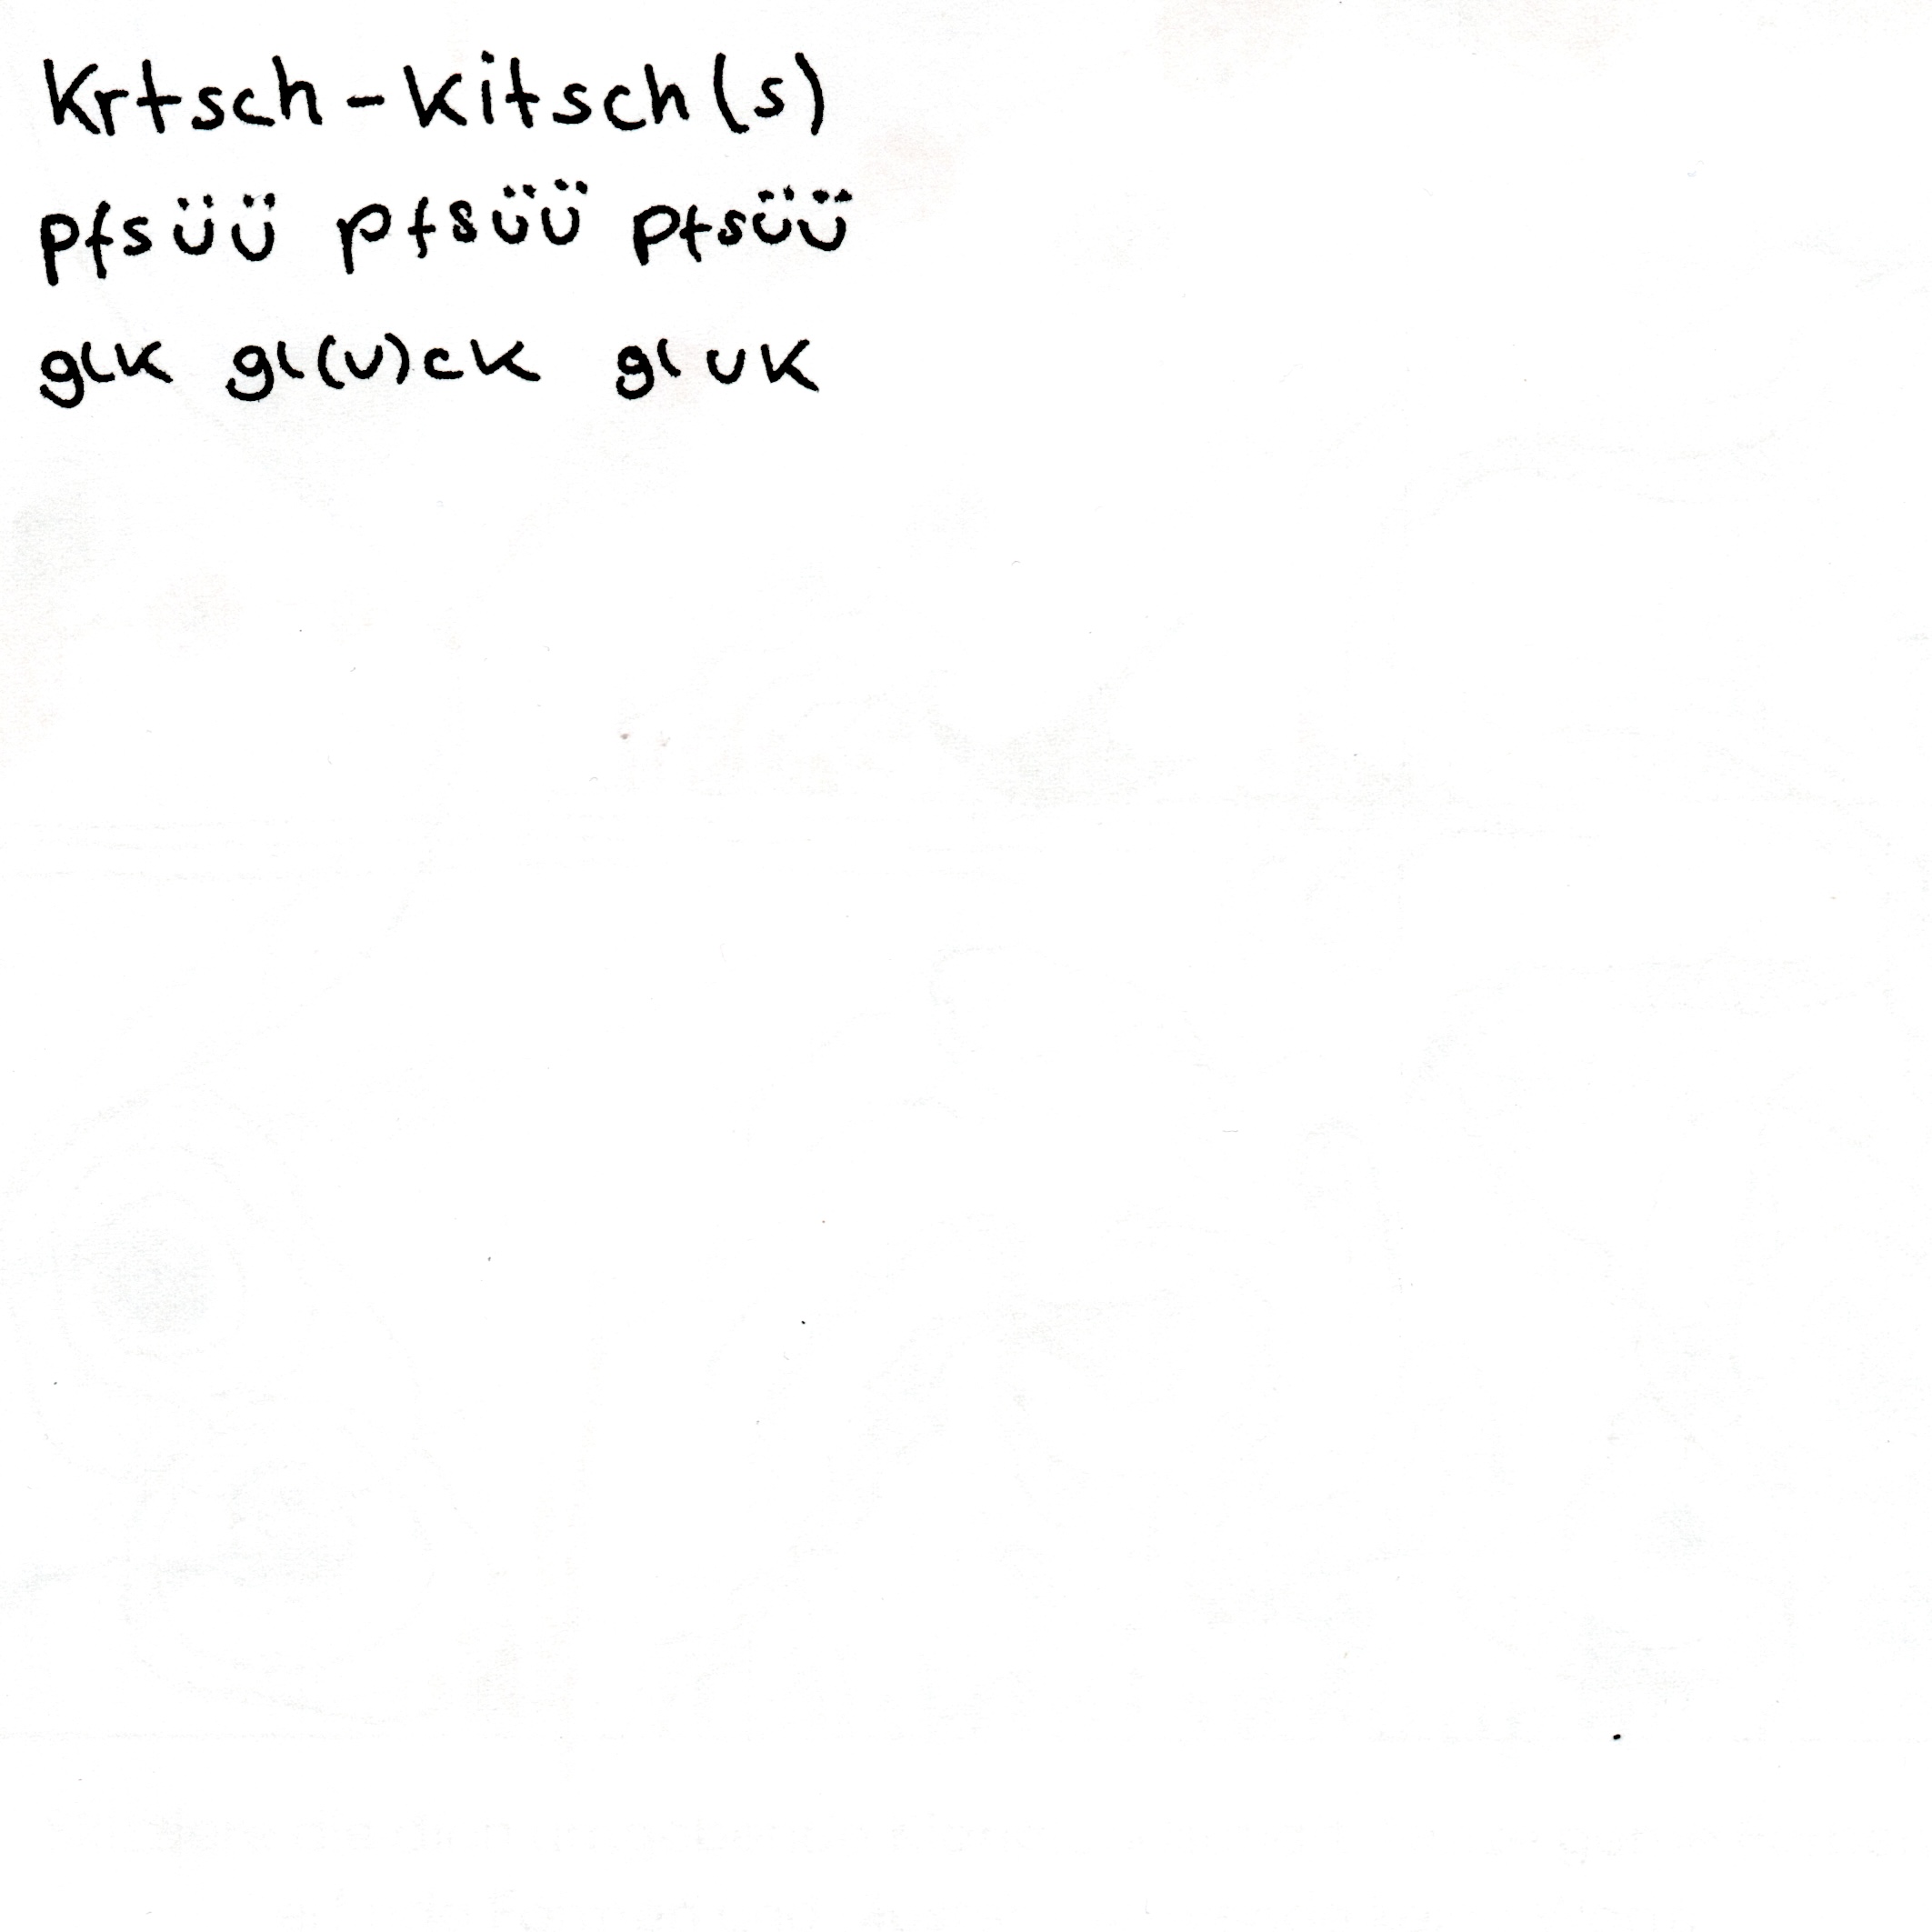 Krtsch-Kitsch(s)
pfsüü pfsüü pfsüü
glk gl(u)ck gluk